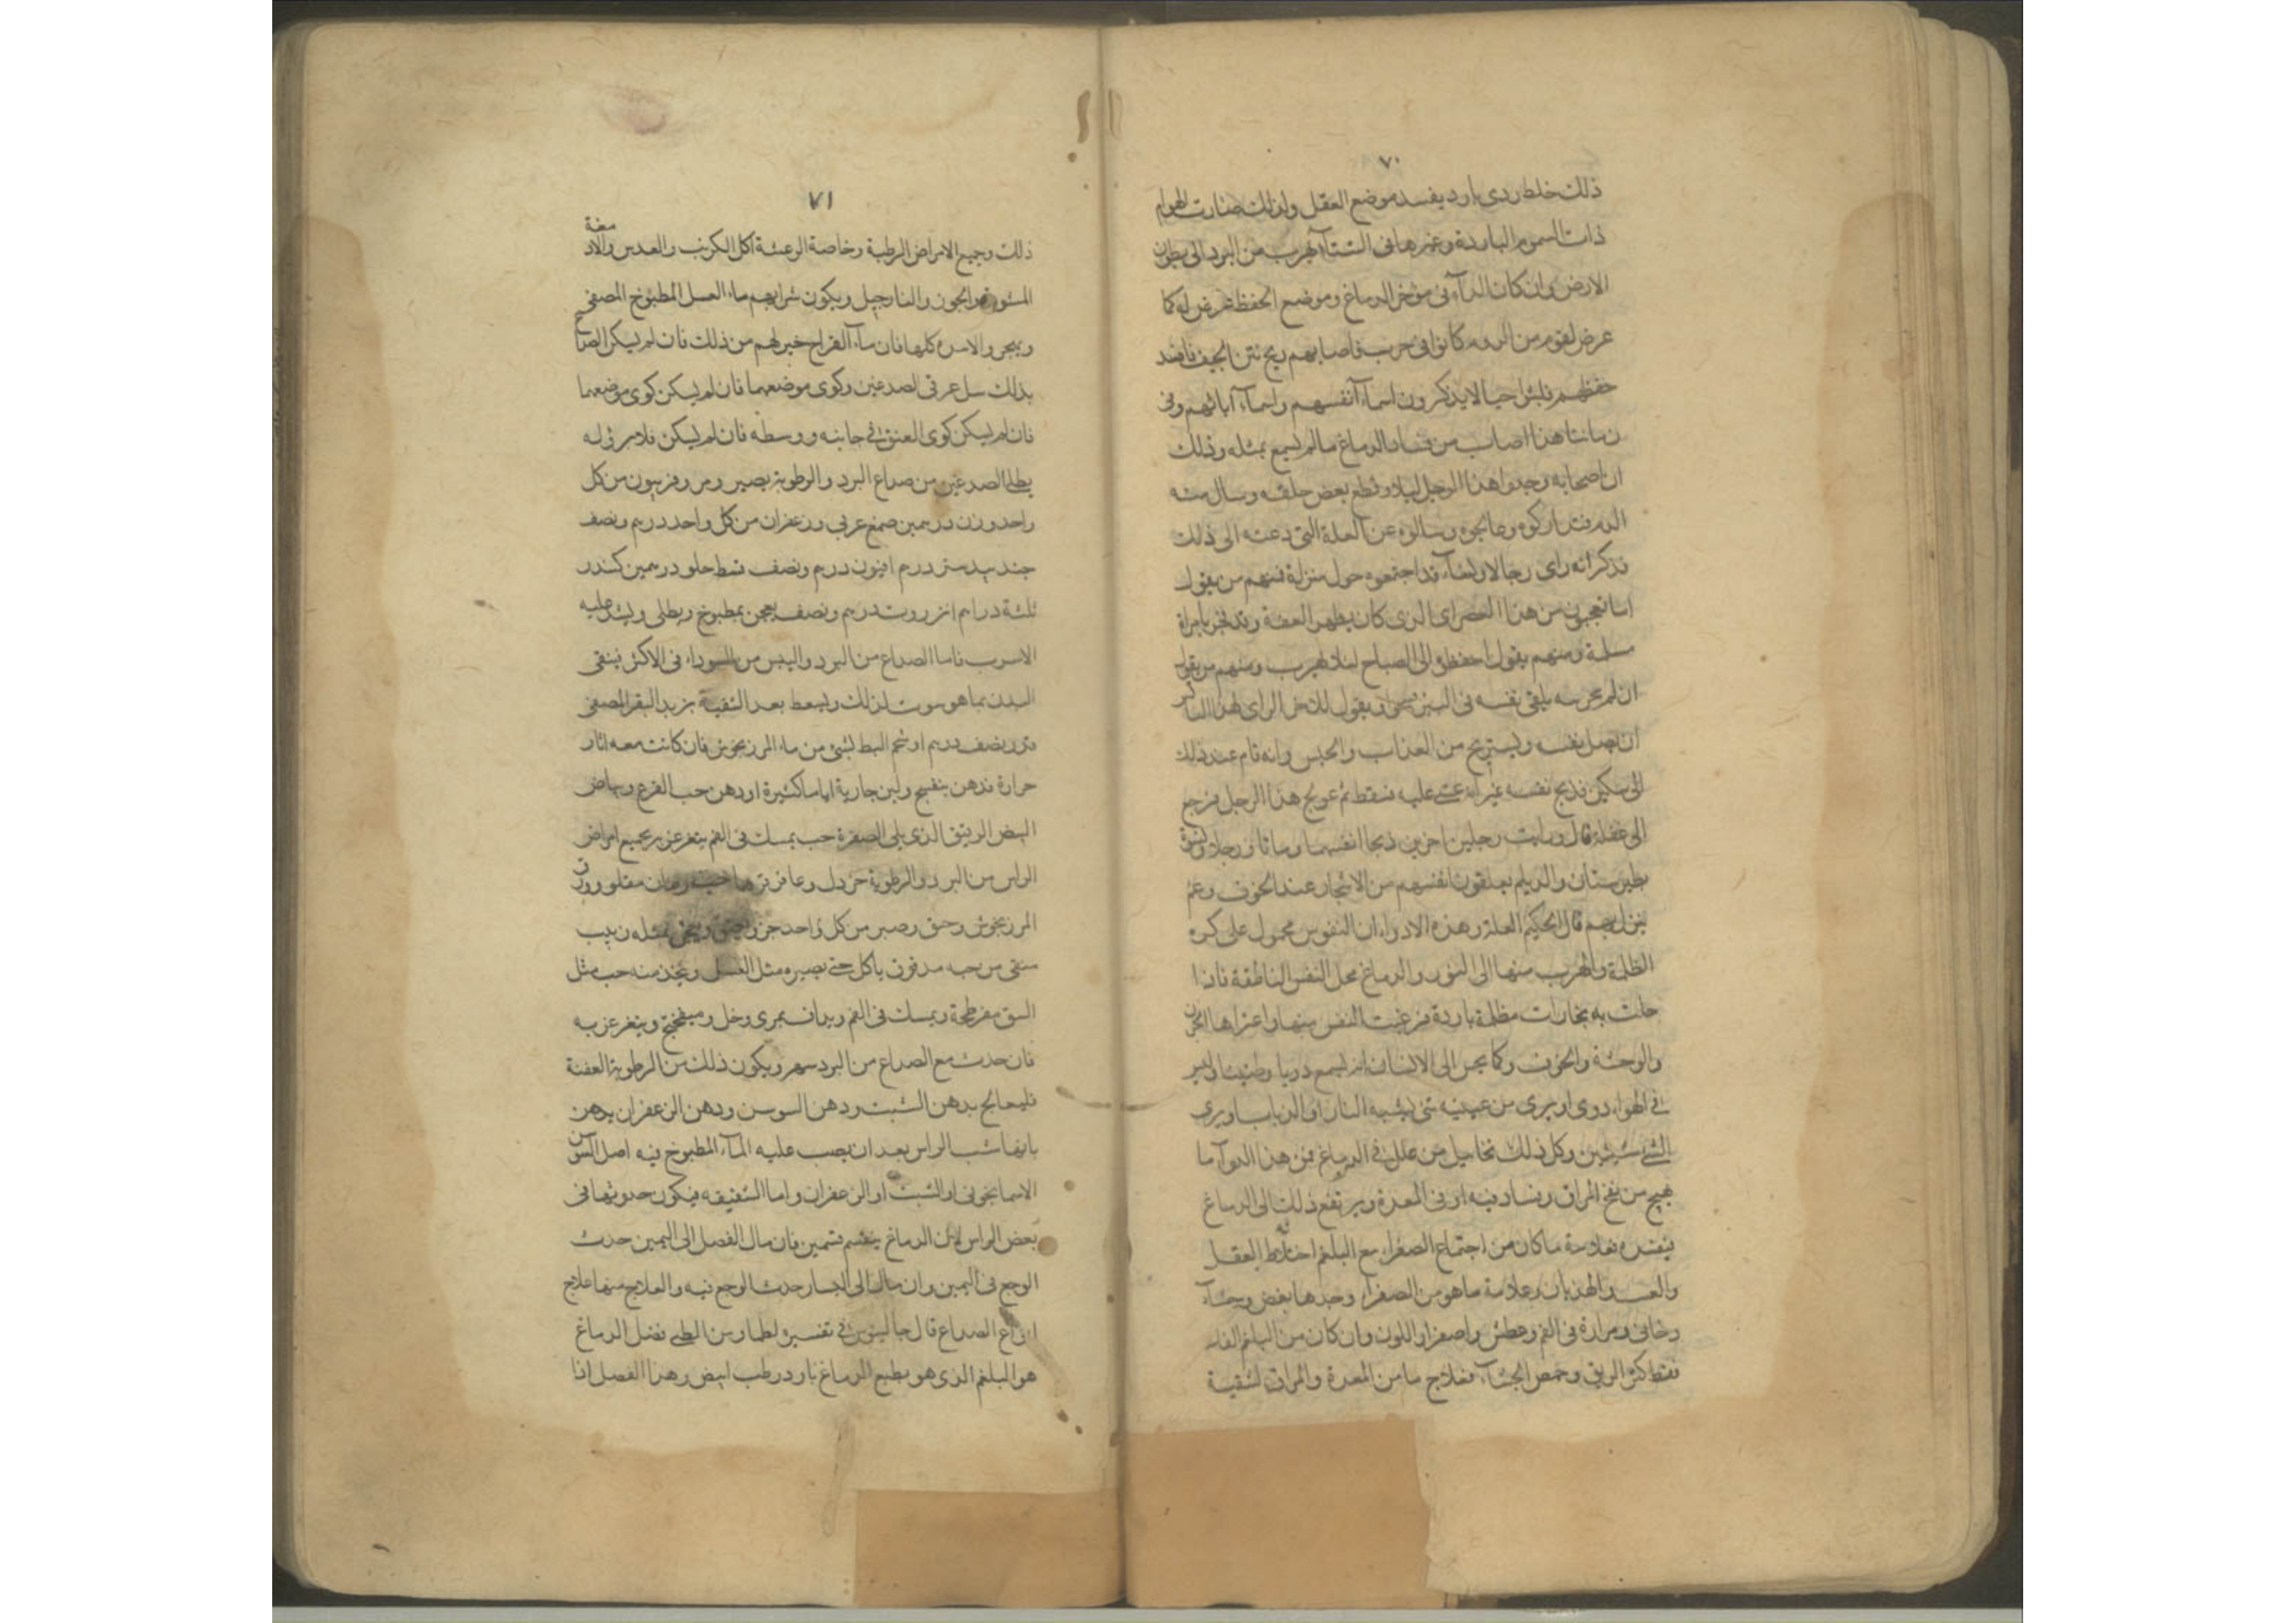 ٧٠
ذلك خلط ردى بارد يفسد موضع العقل ولذلك صارت الهوام
ذات السموم الباردة وغيرها فى الشتآ تهرب من البرد الى بطون
الارض وان كان الدآء فى مؤخر الدماغ وموضع الحفظ عرض له كما
عرض لقوم من الروم كانوا فى حرب فاصابهم ريح نتن الجيف فافسد
حفظهم فلبثوا حينا لا يذكرون اسمآء انفسهم واسمآء ابائهم وفى
زماننا هذا اصاب من فساد الدماغ ما لم يسمع بمثله وذلك
ان اصحابه وجدوا هذا الرجل ليلا وقطع بعض حلقه وسال منه
الدم فتداركوه وعالجوه وسالوه عن العلة التى دعته الى ذلك
فذكر انه راى رجالا ونسآء قد اجتمعوا حول منزلة فمنهم من يقول
اما تعجبون من هذا الذى كان يظهر العفة وقد فجر بامراة
مسلمة ومنهم يقول احفظوه الى الصباح لئلا يهرب ومنهم من يقول
ان لم نحرسه يلقى نفسه فى البئر ويقول للاخر الراى لهذا
ان نفسه ويستريح من العذاب والحبس وانه قام عند ذلك
الى سكين فذبح نفسه غير انه غشى عليه فسقط ثم عولج هذا الرجل فرجع
الى عقله قال ورايت رجلين اخرين ذبحا انفسهما وماتا ورجلا ونسوة
بطبرستان والديلم يعلقون انفسهم من الاشجار عند الخوف وغم
ينزل بهم قال الحكيم العلة فى هذه الادواء ان النفوس مجمول على كره
الظلمة والهرب منها الى النور والدماغ محل النفس الناطقة فاذا
حلت به بخارات مظلمة باردة فزعت النفس منها واعتراها الحزن
والوحشة والخوف وكما يحس الى الانسان انه يسمع دويا وطنينا وليس
فى الهواء دوى او يرى من عينيه شئ يشبه النار او الذباب او يرى
الشئ شيئين وكل ذلك تخاييل من علل فى الدماغ فمن هذا الدوآء ما
يهيج من نفخ المراق وفساد فيه او فى المعدة ويرتفع ذلك الى الدماغ
فيفسده فعلامة ما كان من اجتماع الصفراء مع البلغم اختلاط العقل
والهذيان وعلامة ما هو من الصفراء وحدها بغض وجشآء
دخانى ومرارة فى الفم وعطش واصفرار اللون وان كان من البلغم
فقط كثر الريق وحمض الجشآء فعلاج ما من المعدة والمراق لتنقية
٧١
ذلك وجميع الامراض الرطبة وخاصة الرعشة اكل الكرنب والعدس والادمغة
المشوية والجوز والنارجيل ويكون شرابهم ماء العسل المطبوخ المصفى
ويهجروا الاشربة كلها فان مآء القراح خير لهم من ذلك فان لم يسكن الصداع
بذلك سل عرقى الصدغين وكوى موضعهما فان لم يسكن كوى موضعهما
فان لم يسكن كوى العنق فى جانبيه ووسطه فان لم يسكن فلا برؤ له
يطلى الصدغين من صداع البرد والرطوبة بصبر ومر وفربيون من كل
واحد وزن درهمين صمغ عربى وزعفران من كل واحد درهم ونصف
جندبيدستر درهم افيون درهم ونصف قسط حلو درهمين كندر
ثلثة دراهم انزروت درهم ونصف يعجن بمطبوخ ويطلى ويشد عليه
الاسرب فاما الصداع من البرد واليبس من السوداء فى الاكثر فينقى
البدن بما هو موت لذلك ويسعط بعد التنقية بزبد البقر المصفى
قدر نصف درهم او شحم البط بشئ من ماء المرزنجوش فان كانت معه اثار
حرارة فدهن بنفسج ولبن جارية اياما كثيرة او دهن حب القرع وبياض
البيض الرقيق الذى يلى الصفرة حب يمسك فى الفم يتغرغر به لجميع امراض
الراس من البرد والرطوبة خردل وعاقرقرها حب رمان مقلو وورق
المرزنجوش وحنق وصبر من كل واحد جزء يدق ويعجن بمثله زبيب
منقى من حبه مدقوق ناعم حتى يصيره مثل العسل ويتخذ منه حب مثل
البق مفرطحة ويمسك فى الفم ويداف بمرى وخل وميفختج ويتغرغر به
فان حدث مع الصداع من البرد سهر ويكون ذلك من الرطوبة العفنة
فليعالج بدهن الشبت ودهن السوسن ودهن الزعفران يدهن
بايها شئت الراس بعد ان يصب عليه المآء المطبوخ فيه اصل السوسن
الاسمانجونى او الشبت او الزعفران واما الشقيقه فيكون حدوثها فى
بعض الراس لان الدماغ ينقسم قسمين فان مال الفضل الى اليمين حدث
الوجع فى اليمين وان مال الى اليسار حدث الوجع فيه والعلاج منها علاج
انواع الصداع قال جالينوس فى تفسيره لطيماوس الطبى فضل الدماغ
هو البلغم الذى هو بطبع الدماغ بارد رطب ابيض وهذا الفضل اذا